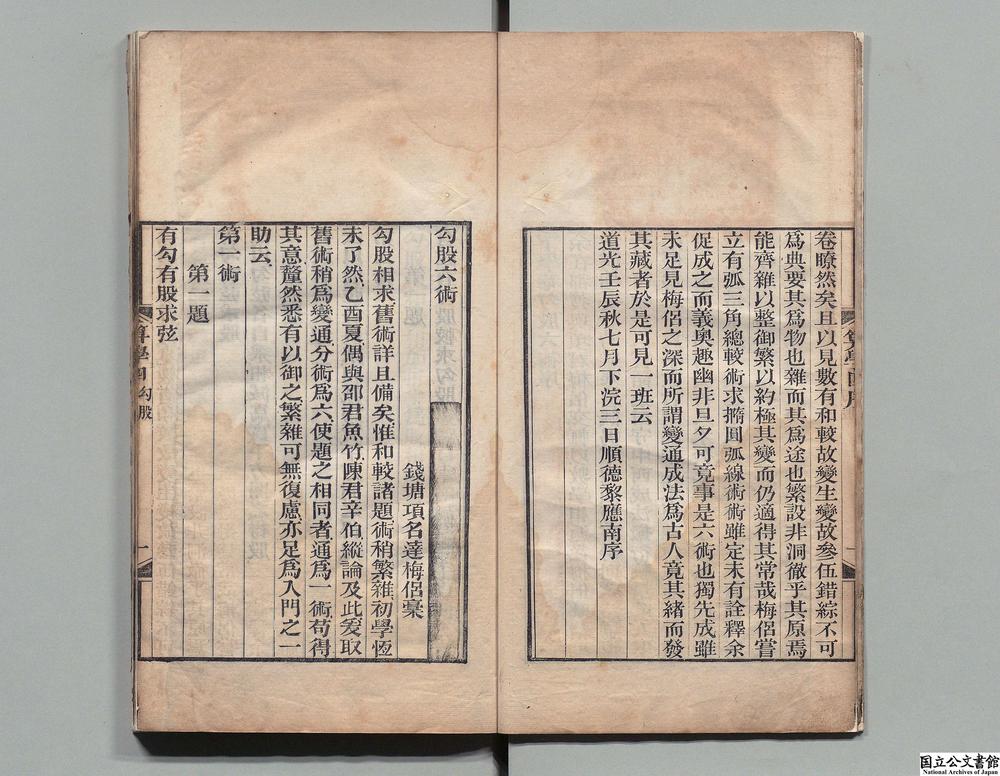 卷瞭然矣且以見數有和較故變生變故參伍錯綜不可
爲典要其爲物也雜而其爲途也繁設非洞徹乎其原焉
能齊雜以整御繁以約極其變而仍適得其常哉梅侶嘗
立有弧三角總較術求橢圓弧線術術雖定未有詮釋余
促成之而義奧趣幽非旦夕可竟事是六術也獨先成雖
未足見梅侶之深而所謂變通成法爲古人竟其緒而發
其藏者於是可見一班云
道光壬辰秋七月下浣三日順德黎應南序
勾股六術
錢塘項名達梅侶稾
勾股相求舊術詳且備矣惟和較諸題術稍繁雜初學恆
未了然乙酉夏偶與邵君魚竹陳君辛伯縱論及此爰取
舊術稍爲變通分術爲六使題之相同者通爲一術苟得
其意釐然悉有以御之繁雜可無復慮亦足爲入門之一
助云
第一術
第一題
有勾有股求弦
勾股
一
国立公文書館
National Archives of Japan